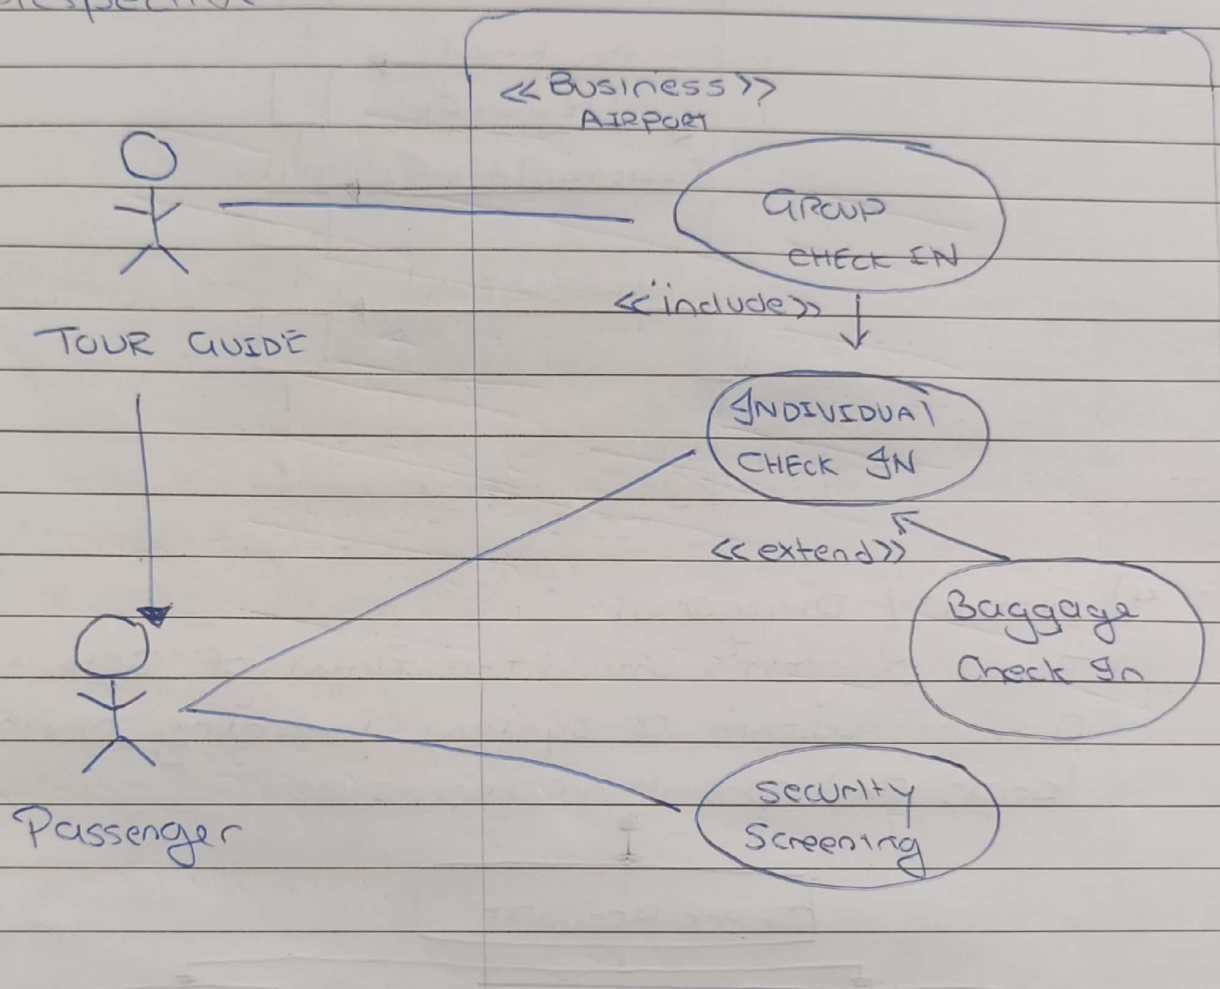 <<Business>>
AIRPORT
GROUP
CHECK IN
<<include>>
TOUR GUIDE
INDIVIDUAL
CHECK IN
<<extend>>
Baggage
Check In
Security
Screening
Passenger